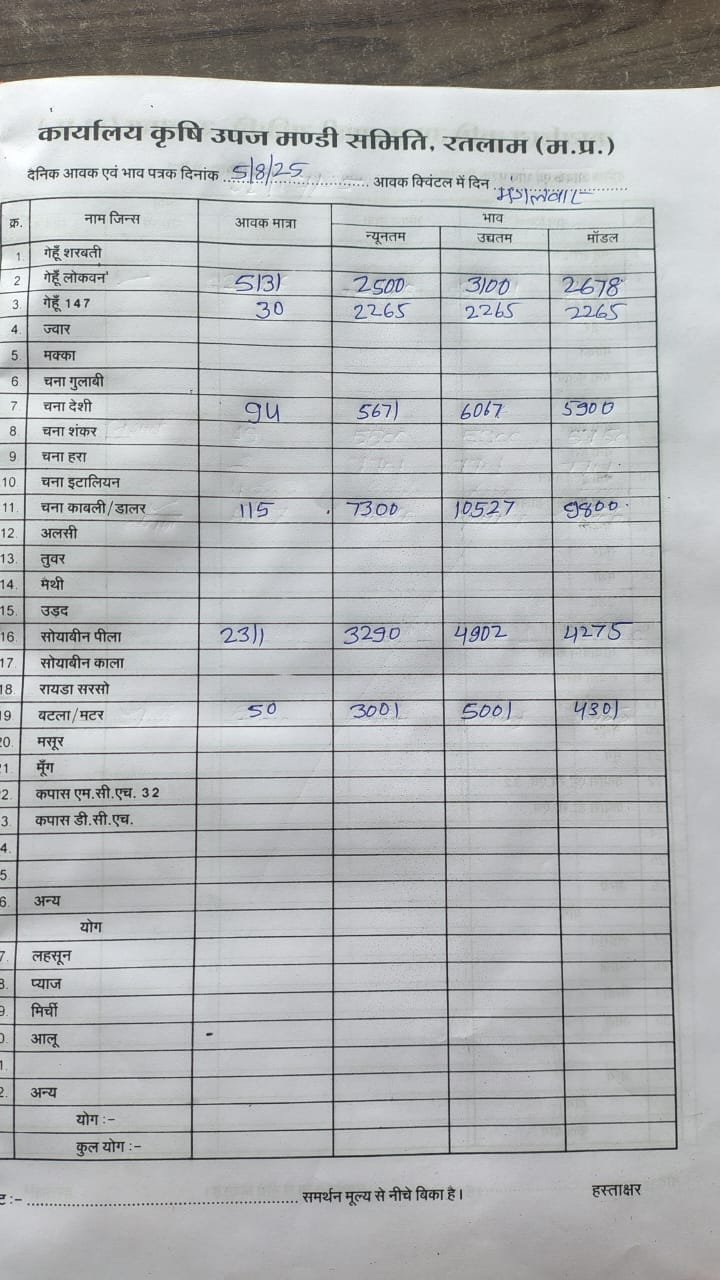 कार्यालय कृषि उपज मण्डी समिति, रतलाम (म.प्र.)
दैनिक आवक एवं भाव पत्रक दिनांक 5/8/25 आवक क्विंटल में दिन मंगलवार
क्र. नाम जिन्स आवक मात्रा भाव
न्यूनतम उच्चतम मॉडल
1. गेहूँ शरबती
2 गेहूँ लोकवन 5131 2500 3100 2678
3. गेहूँ 147 30 2265 2265 2265
4. ज्वार
5. मक्का
6 चना गुलाबी
7 चना देशी 94 5671 6067 5900
8 चना शंकर
9 चना हरा
10. चना इटालियन
11. चना काबली/डालर 115 7300 10527 9800
12. अलसी
13. तुवर
14. मेथी
15. उड़द
16. सोयाबीन पीला 2311 3290 4902 4275
17. सोयाबीन काला
18. रायडा सरसो
19 बटला/मटर 50 3001 5001 4301
0. मसूर
1. मूँग
2. कपास एम.सी.एच. 32
3. कपास डी.सी.एच.
4.
5.
6. अन्य
योग
7. लहसून
8. प्याज
9. मिर्ची
0. आलू
1
2. अन्य
योग :-
कुल योग :-
:- समर्थन मूल्य से नीचे बिका है।
हस्ताक्षर